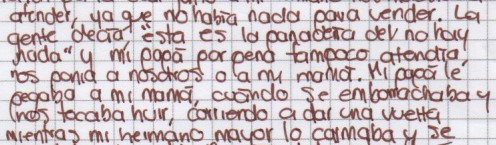 atender, ya que no había nada para vender. La
gente decía, "esta es la panadería del no hay
nada" y mi papá por pena tampoco atendía,
nos ponía a nosotros o a mi mamá. Mi papá le
pegaba a mi mamá, cuando se emborrachaba y
nos tocaba huir, corriendo a dar una vuelta
mientras mi hermano mayor lo calmaba y se